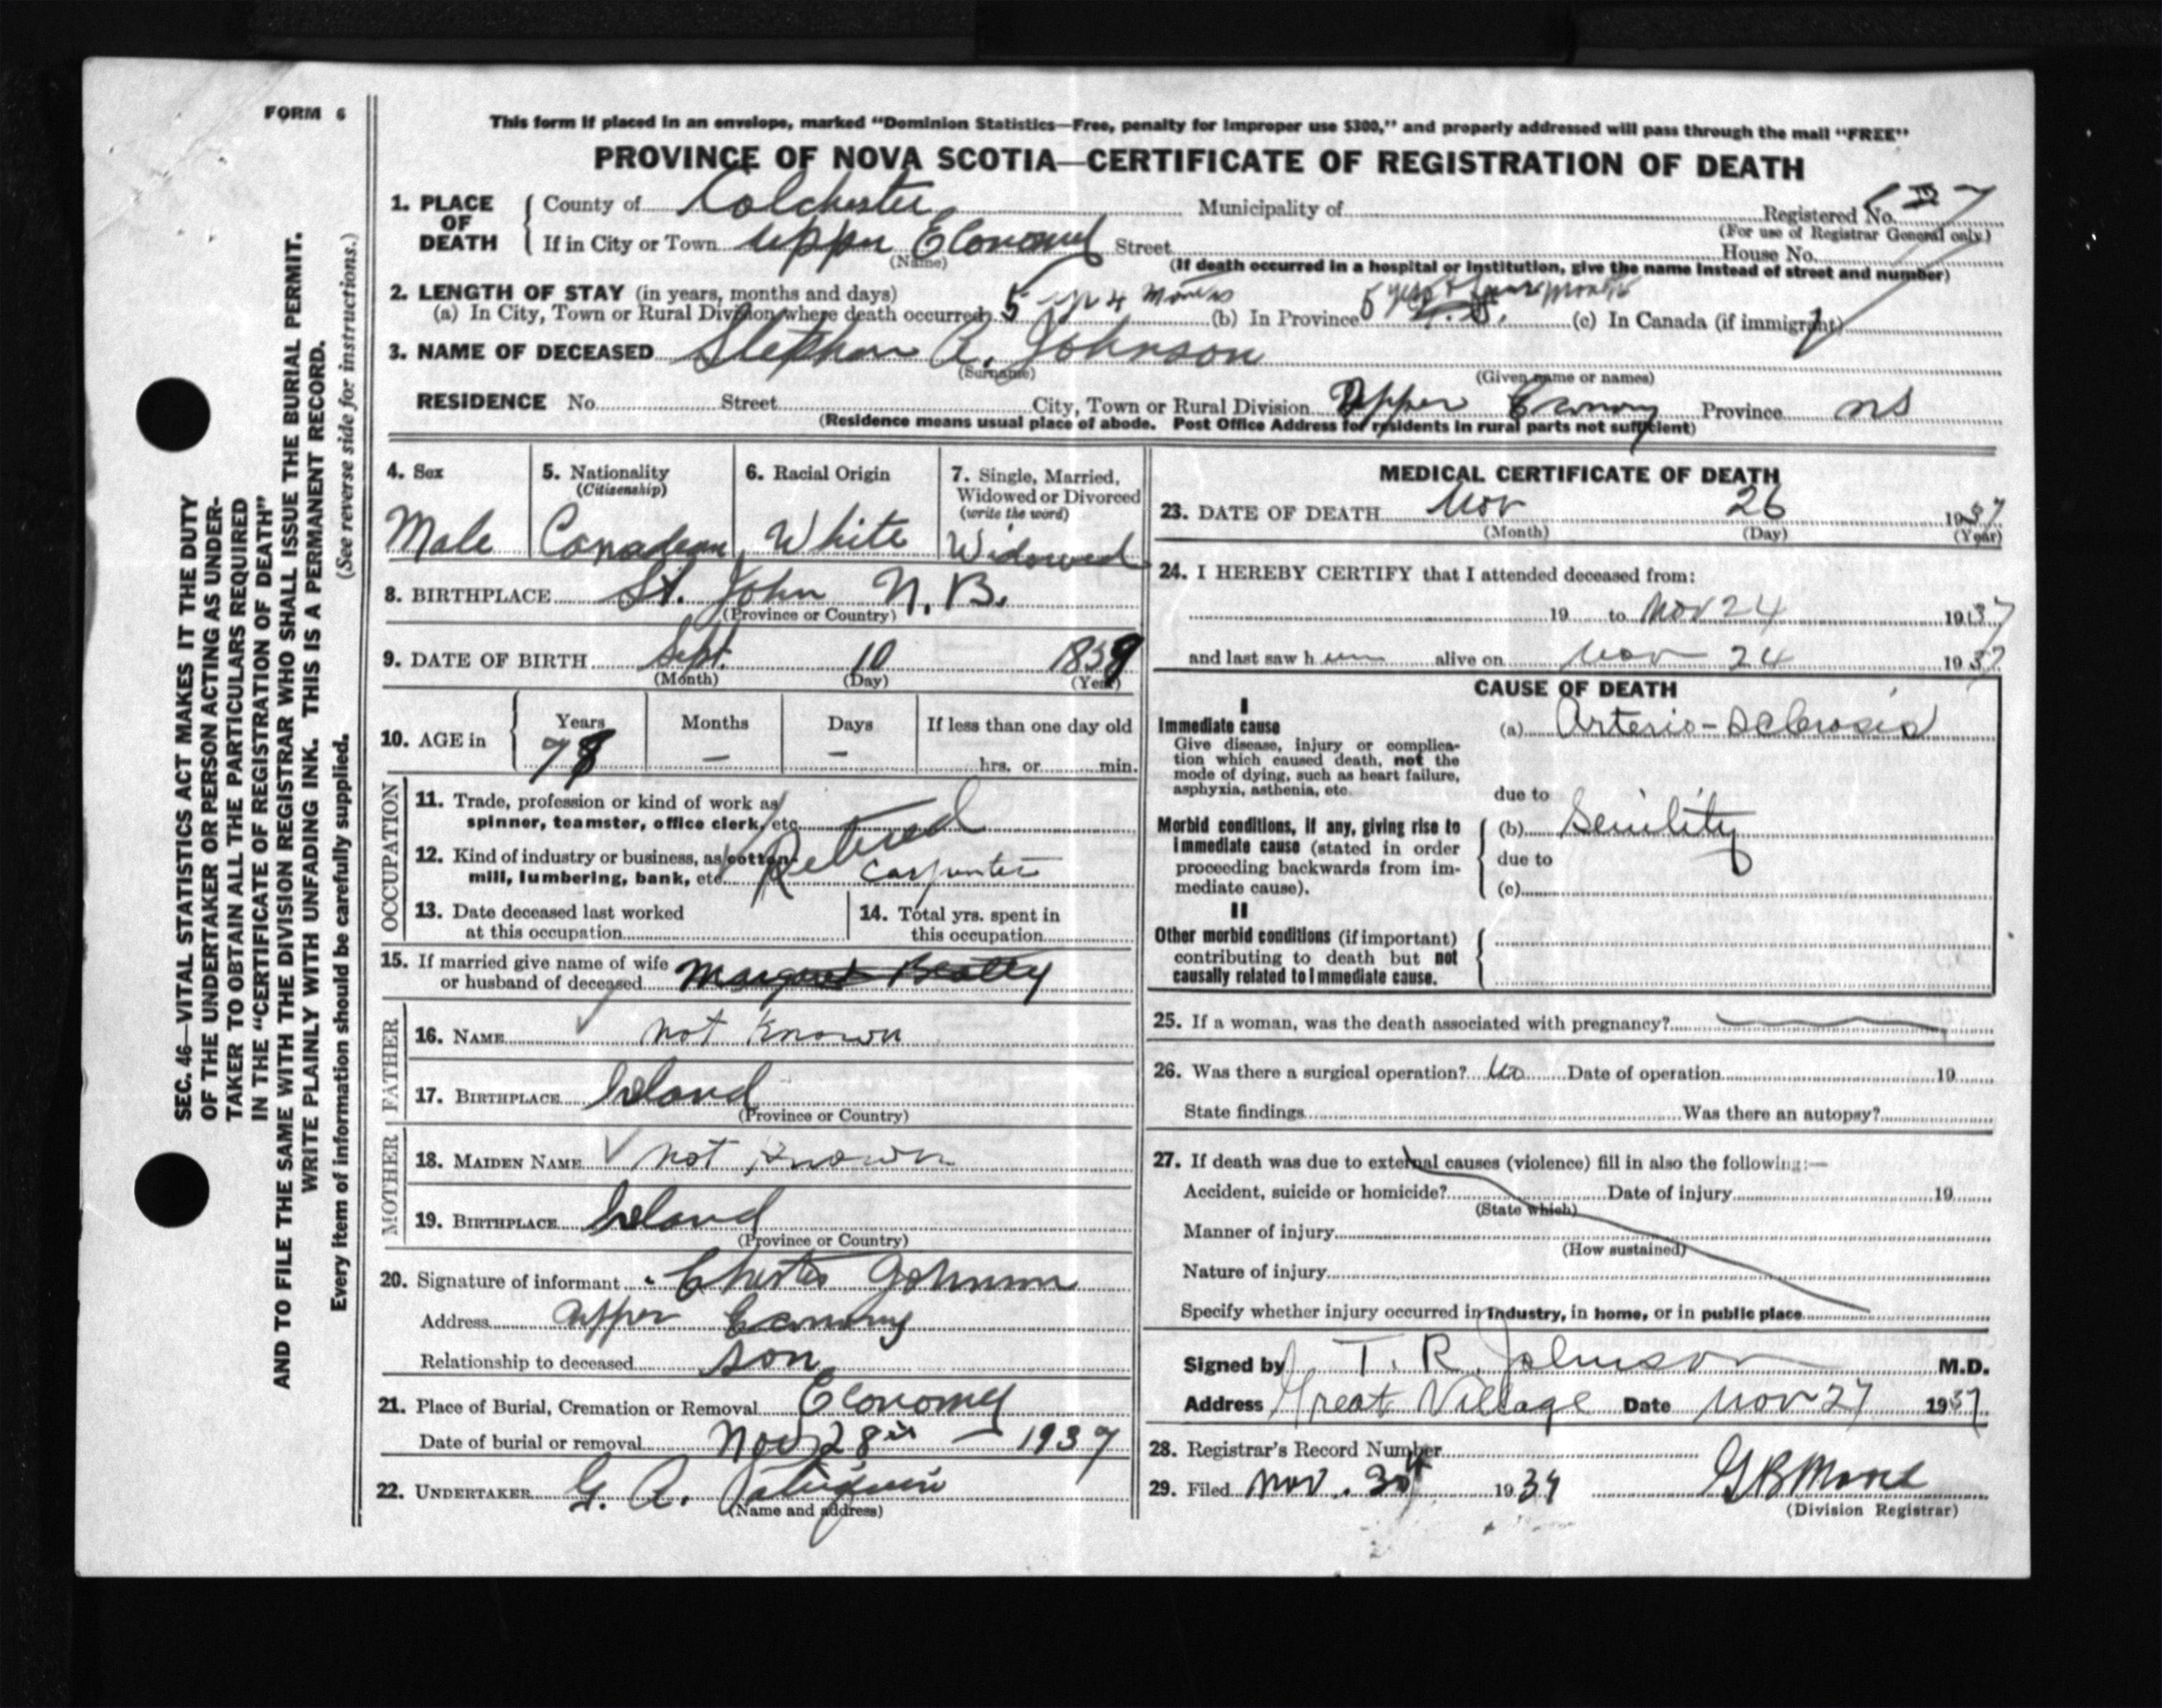 FORM 6
This form if placed in an envelope, marked "Dominion Statistics—Free, penalty for improper use $300," and properly addressed will pass through the mail "FREE"
PROVINCE OF NOVA SCOTIA—CERTIFICATE OF REGISTRATION OF DEATH
1. PLACE OF DEATH County of Colchester Municipality of Registered No.
(For use of Registrar General only)
If in City or Town Upper Economy Street House No.
(Name)
(If death occurred in a hospital or institution, give the name instead of street and number)
2. LENGTH OF STAY (in years, months and days)
(a) In City, Town or Rural Division where death occurred 5 yr 4 months (b) In Province 5 years & four months (c) In Canada (if immigrant)
3. NAME OF DECEASED Stephen A. Johnson
(Surname) (Given name or names)
RESIDENCE No. Street City, Town or Rural Division Upper Economy Province NS
(Residence means usual place of abode. Post Office Address for residents in rural parts not sufficient)
4. Sex
Male
5. Nationality
(Citizenship)
Canadean
6. Racial Origin
White
7. Single, Married,
Widowed or Divorced
(write the word)
Widowed
8. BIRTHPLACE St. John N.B.
(Province or Country)
9. DATE OF BIRTH Sept. 10 1859
(Month) (Day) (Year)
10. AGE in Years Months Days If less than one day old
78 — — hrs. or min.
OCCUPATION
11. Trade, profession or kind of work as
spinner, teamster, office clerk, etc. Retired
12. Kind of industry or business, as cotton-
mill, lumbering, bank, etc. Carpenter
13. Date deceased last worked
at this occupation
14. Total yrs. spent in
this occupation
15. If married give name of wife
or husband of deceased Margaret Beatty
FATHER
16. NAME not known
17. BIRTHPLACE Ireland
(Province or Country)
MOTHER
18. MAIDEN NAME not known
19. BIRTHPLACE Ireland
(Province or Country)
20. Signature of informant Chester Johnson
Address Upper Economy
Relationship to deceased son
21. Place of Burial, Cremation or Removal Economy
Date of burial or removal Nov 28th — 1937
22. UNDERTAKER G. A.
(Name and address)
MEDICAL CERTIFICATE OF DEATH
23. DATE OF DEATH Nov 26 1937
(Month) (Day) (Year)
24. I HEREBY CERTIFY that I attended deceased from:
19 to Nov 24 1937
and last saw h im alive on Nov 24 1937
CAUSE OF DEATH
I
Immediate cause
Give disease, injury or complica-
tion which caused death, not the
mode of dying, such as heart failure,
asphyxia, asthenia, etc.
(a) Arterio-sclerosis
due to
Morbid conditions, if any, giving rise to
immediate cause (stated in order
proceeding backwards from im-
mediate cause).
(b) Senility
due to
(c)
II
Other morbid conditions (if important)
contributing to death but not
causally related to immediate cause.
25. If a woman, was the death associated with pregnancy?
26. Was there a surgical operation? No Date of operation 19
State findings Was there an autopsy?
27. If death was due to external causes (violence) fill in also the following:—
Accident, suicide or homicide? Date of injury 19
(State which)
Manner of injury
(How sustained)
Nature of injury
Specify whether injury occurred in industry, in home, or in public place
Signed by T. R. Johnson M.D.
Address Great Village Date Nov 27 1937
28. Registrar's Record Number
29. Filed Nov. 30th 1937
(Division Registrar)
SEC. 46—VITAL STATISTICS ACT MAKES IT THE DUTY
OF THE UNDERTAKER OR PERSON ACTING AS UNDER-
TAKER TO OBTAIN ALL THE PARTICULARS REQUIRED
IN THE "CERTIFICATE OF REGISTRATION OF DEATH"
AND TO FILE THE SAME WITH THE DIVISION REGISTRAR WHO SHALL ISSUE THE BURIAL PERMIT.
WRITE PLAINLY WITH UNFADING INK. THIS IS A PERMANENT RECORD.
Every item of information should be carefully supplied.
(See reverse side for instructions.)